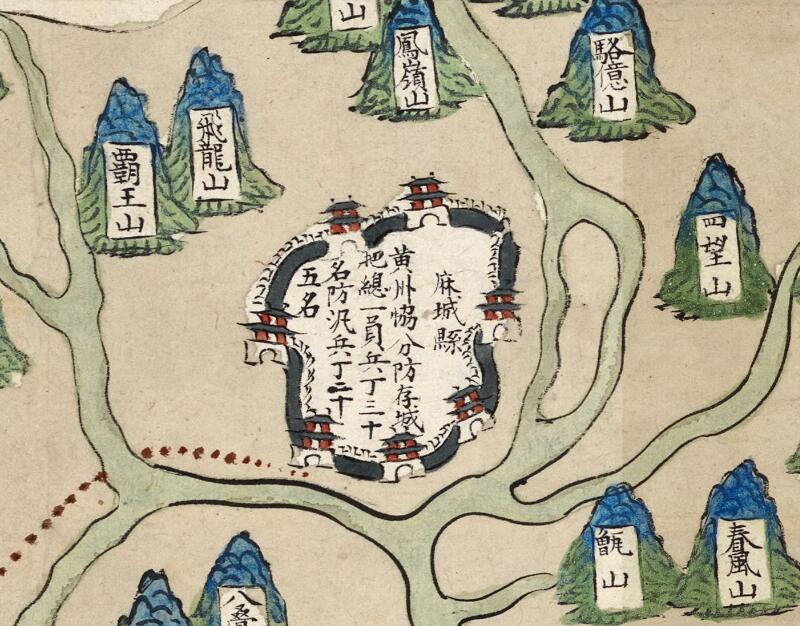 山
鳳嶺山
駱億山
飛龍山
覇王山
四望山
麻城縣
黄州協分防存城
把總一員兵丁三十
名防汛兵丁二十
五名
甑山
春風山
八疊